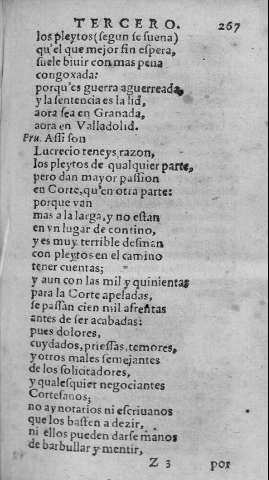 TERCERO. 267
los pleytos (segun se suena)
qu'el que mejor fin espera,
suele biuir con mas pena
congoxada:
porqu'es guerra aguerreada,
y la sentencia es la lid,
aora sea en Granada,
aora en Valladolid.
Pru. Assi son
Lucrecio teneys, razon,
los pleytos de qualquier parte,
pero dan mayor passion
en Corte, qu'en otra parte:
porque van
mas a la larga, y no estan
en vn lugar de contino,
y es muy terrible desman
con pleytos en el camino
tener cuentas;
y aun con las mil y quinientas
para la Corte apeladas,
se passan cien mil afrentas
antes de ser acabadas:
pues dolores,
cuydados, priessas, temores,
y otros males semejantes
de los solicitadores,
y qualesquier negociantes
Cortesanos;
no ay notarios ni escriuanos
que los basten a dezir,
ni ellos pueden darse manos
de barbullar y mentir,
Z 3 por